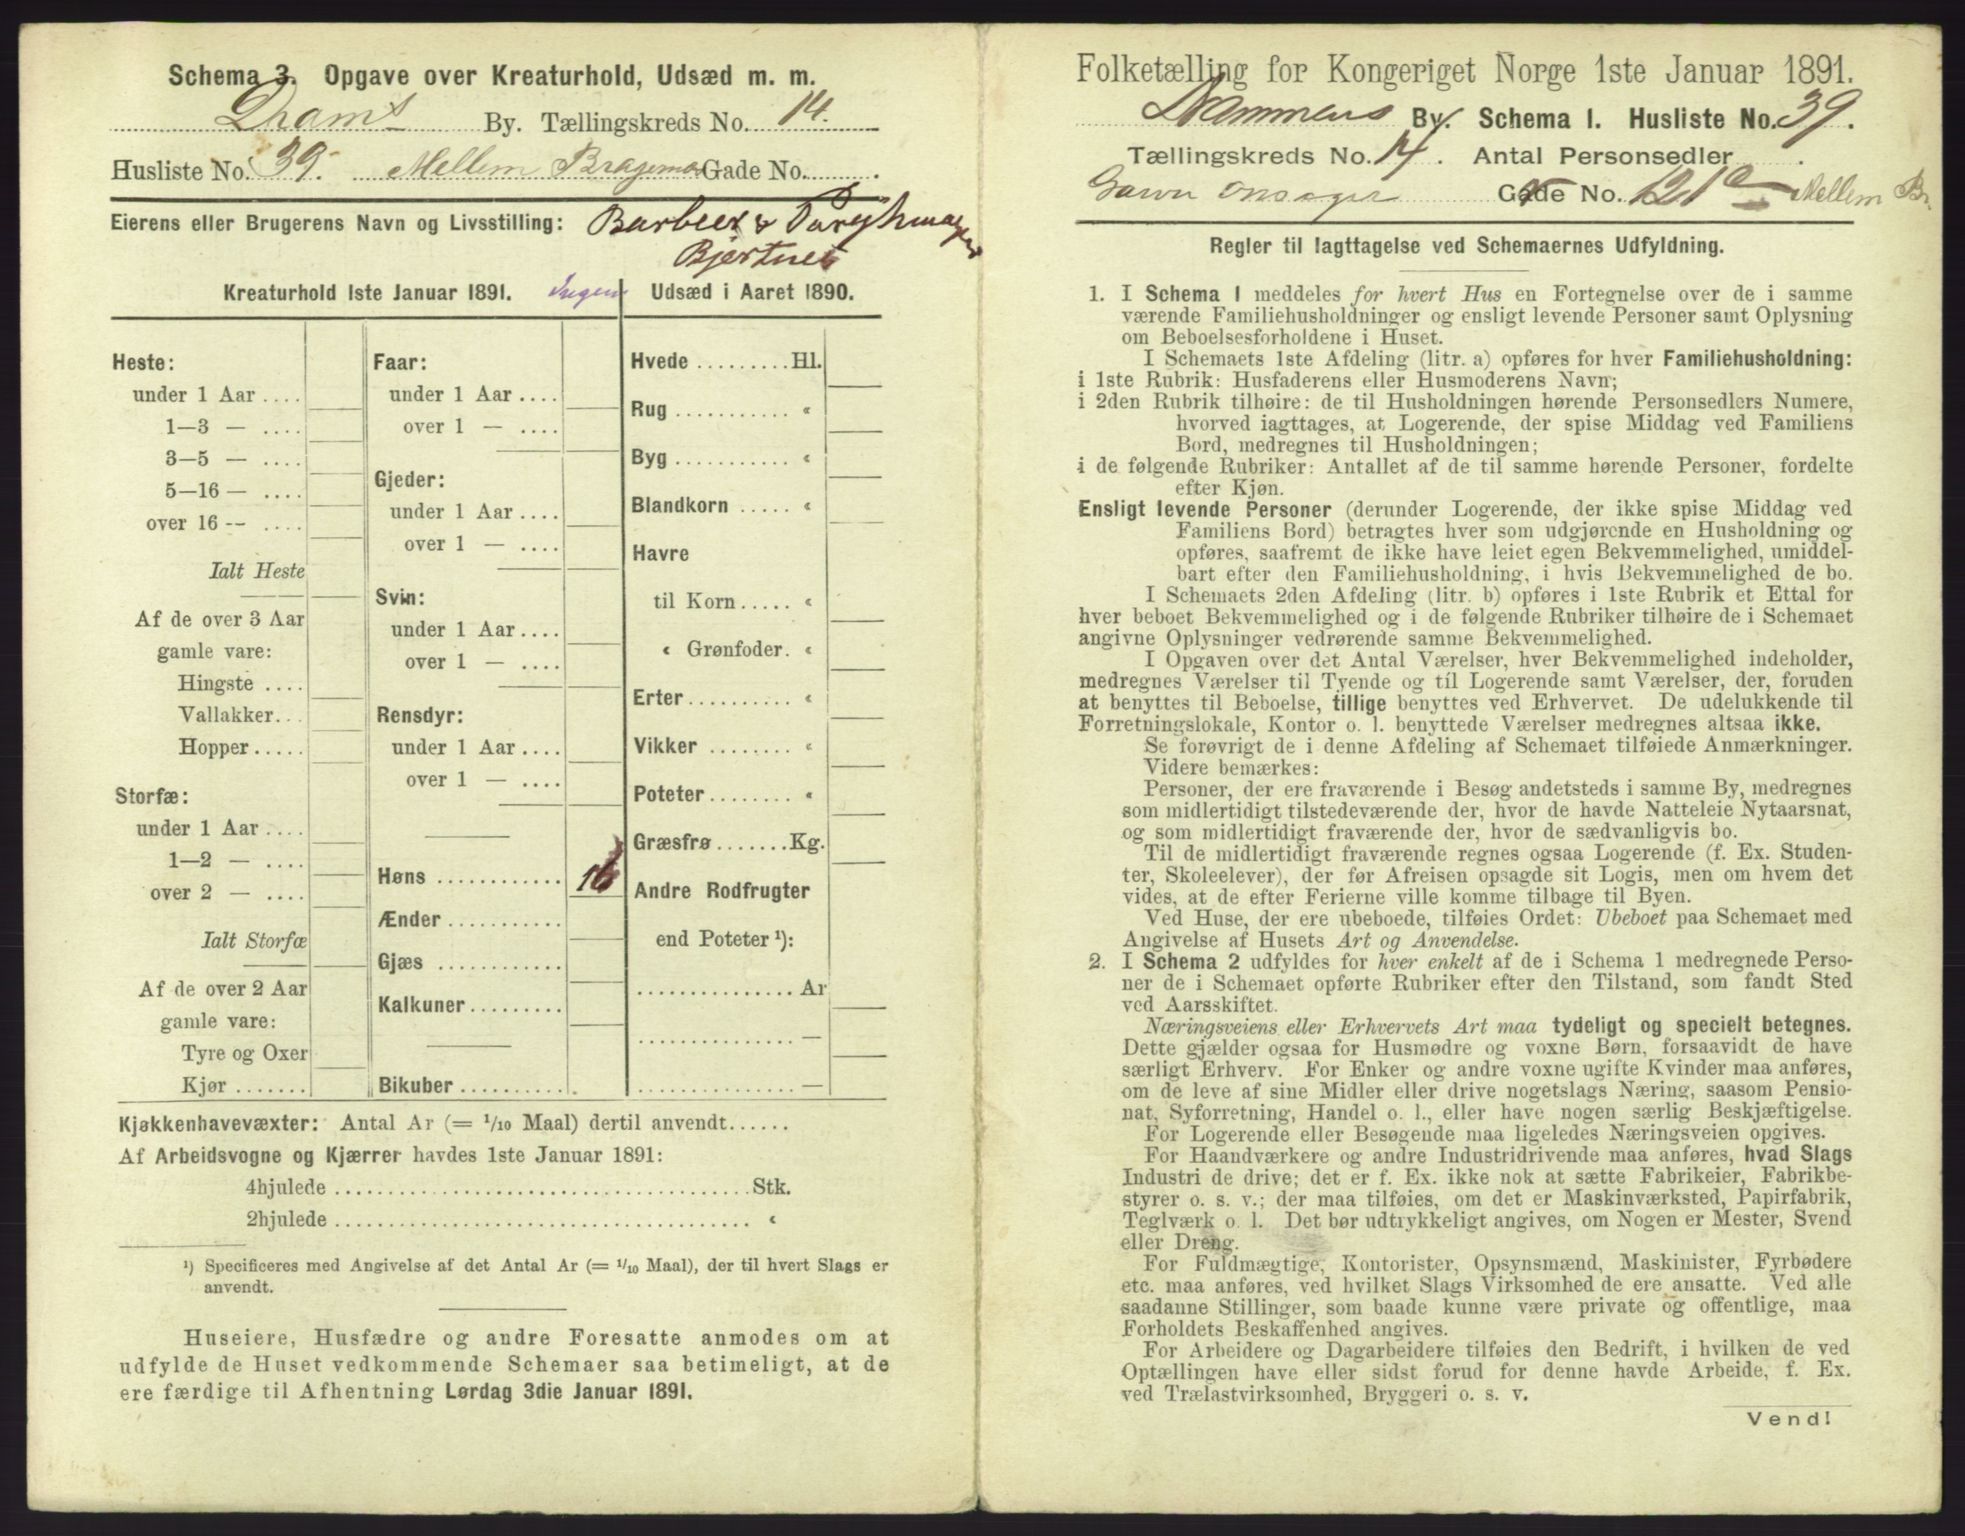 Schema 3. Opgave over Kreaturhold, Udsæd m. m.
Drams By. Tællingskreds No. 14.
Husliste No. 39. Mellem Bragernes Gade No.
Eierens eller Brugerens Navn og Livsstilling: Barbeer &
Bjertnes
Kreaturhold 1ste Januar 1891. Ingen
Heste:
under 1 Aar ....
1—3 — ....
3—5 — ....
5—16 — ....
over 16 -- ....
Ialt Heste
Af de over 3 Aar
gamle vare:
Hingste ....
Vallakker...
Hopper.....
Storfæ:
under 1 Aar ....
1—2 — ....
over 2 — ....
Ialt Storfæ
Af de over 2 Aar
gamle vare:
Tyre og Oxer
Kjør .......
Faar:
under 1 Aar ....
over 1 — ....
Gjeder:
under 1 Aar ....
over 1 — ....
Svin:
under 1 Aar ....
over 1 — ....
Rensdyr:
under 1 Aar ....
over 1 — ....
Høns ............ 16
Ænder ...........
Gjæs ............
Kalkuner.........
Bikuber ..........
Udsæd i Aaret 1890.
Hvede .........Hl.
Rug ........... «
Byg ........... «
Blandkorn ..... «
Havre
til Korn ..... «
« Grønfoder. «
Erter .......... «
Vikker ........ «
Poteter ........ «
Græsfrø .......Kg.
Andre Rodfrugter
end Poteter ¹):
................ Ar
................ —
................ —
Kjøkkenhavevæxter: Antal Ar (= 1/10 Maal) dertil anvendt......
Af Arbeidsvogne og Kjærrer havdes 1ste Januar 1891:
4hjulede ..........................................Stk.
2hjulede .......................................... «
¹) Specificeres med Angivelse af det Antal Ar (= 1/10 Maal), der til hvert Slags er
anvendt.
Huseiere, Husfædre og andre Foresatte anmodes om at
udfylde de Huset vedkommende Schemaer saa betimeligt, at de
ere færdige til Afhentning Lørdag 3die Januar 1891.
Folketælling for Kongeriget Norge 1ste Januar 1891.
Drammens By. Schema I. Husliste No. 39.
Tællingskreds No. 14. Antal Personsedler .
Gade No. 121 Mellem Br.
Regler til Iagttagelse ved Schemaernes Udfyldning.
1. I Schema I meddeles for hvert Hus en Fortegnelse over de i samme
værende Familiehusholdninger og ensligt levende Personer samt Oplysning
om Beboelsesforholdene i Huset.
I Schemaets 1ste Afdeling (litr. a) opføres for hver Familiehusholdning:
i 1ste Rubrik: Husfaderens eller Husmoderens Navn;
i 2den Rubrik tilhøire: de til Husholdningen hørende Personsedlers Numere,
hvorved iagttages, at Logerende, der spise Middag ved Familiens
Bord, medregnes til Husholdningen;
i de følgende Rubriker: Antallet af de til samme hørende Personer, fordelte
efter Kjøn.
Ensligt levende Personer (derunder Logerende, der ikke spise Middag ved
Familiens Bord) betragtes hver som udgjørende en Husholdning og
opføres, saafremt de ikke have leiet egen Bekvemmelighed, umiddel-
bart efter den Familiehusholdning, i hvis Bekvemmelighed de bo.
I Schemaets 2den Afdeling (litr. b) opføres i 1ste Rubrik et Ettal for
hver beboet Bekvemmelighed og i de følgende Rubriker tilhøire de i Schemaet
angivne Oplysninger vedrørende samme Bekvemmelighed.
I Opgaven over det Antal Værelser, hver Bekvemmelighed indeholder,
medregnes Værelser til Tyende og til Logerende samt Værelser, der, foruden
at benyttes til Beboelse, tillige benyttes ved Erhvervet. De udelukkende til
Forretningslokale, Kontor o. l. benyttede Værelser medregnes altsaa ikke.
Se forøvrigt de i denne Afdeling af Schemaet tilføiede Anmærkninger.
Videre bemærkes:
Personer, der ere fraværende i Besøg andetsteds i samme By, medregnes
som midlertidigt tilstedeværende der, hvor de havde Natteleie Nytaarsnat,
og som midlertidigt fraværende der, hvor de sædvanligvis bo.
Til de midlertidigt fraværende regnes ogsaa Logerende (f. Ex. Studen-
ter, Skoleelever), der før Afreisen opsagde sit Logis, men om hvem det
vides, at de efter Ferierne ville komme tilbage til Byen.
Ved Huse, der ere ubeboede, tilføies Ordet: Ubeboet paa Schemaet med
Angivelse af Husets Art og Anvendelse.
2. I Schema 2 udfyldes for hver enkelt af de i Schema 1 medregnede Perso-
ner de i Schemaet opførte Rubriker efter den Tilstand, som fandt Sted
ved Aarsskiftet.
Næringsveiens eller Erhvervets Art maa tydeligt og specielt betegnes.
Dette gjælder ogsaa for Husmødre og voxne Børn, forsaavidt de have
særligt Erhverv. For Enker og andre voxne ugifte Kvinder maa anføres,
om de leve af sine Midler eller drive nogetslags Næring, saasom Pensio-
nat, Syforretning, Handel o. l., eller have nogen særlig Beskjæftigelse.
For Logerende eller Besøgende maa ligeledes Næringsveien opgives.
For Haandværkere og andre Industridrivende maa anføres, hvad Slags
Industri de drive; det er f. Ex. ikke nok at sætte Fabrikeier, Fabrikbe-
styrer o. s. v.; der maa tilføies, om det er Maskinværksted, Papirfabrik,
Teglværk o. l. Det bør udtrykkeligt angives, om Nogen er Mester, Svend
eller Dreng.
For Fuldmægtige, Kontorister, Opsynsmænd, Maskinister, Fyrbødere
etc. maa anføres, ved hvilket Slags Virksomhed de ere ansatte. Ved alle
saadanne Stillinger, som baade kunne være private og offentlige, maa
Forholdets Beskaffenhed angives.
For Arbeidere og Dagarbeidere tilføies den Bedrift, i hvilken de ved
Optællingen have eller sidst forud for denne havde Arbeide, f. Ex.
ved Trælastvirksomhed, Bryggeri o. s. v.
Vend!